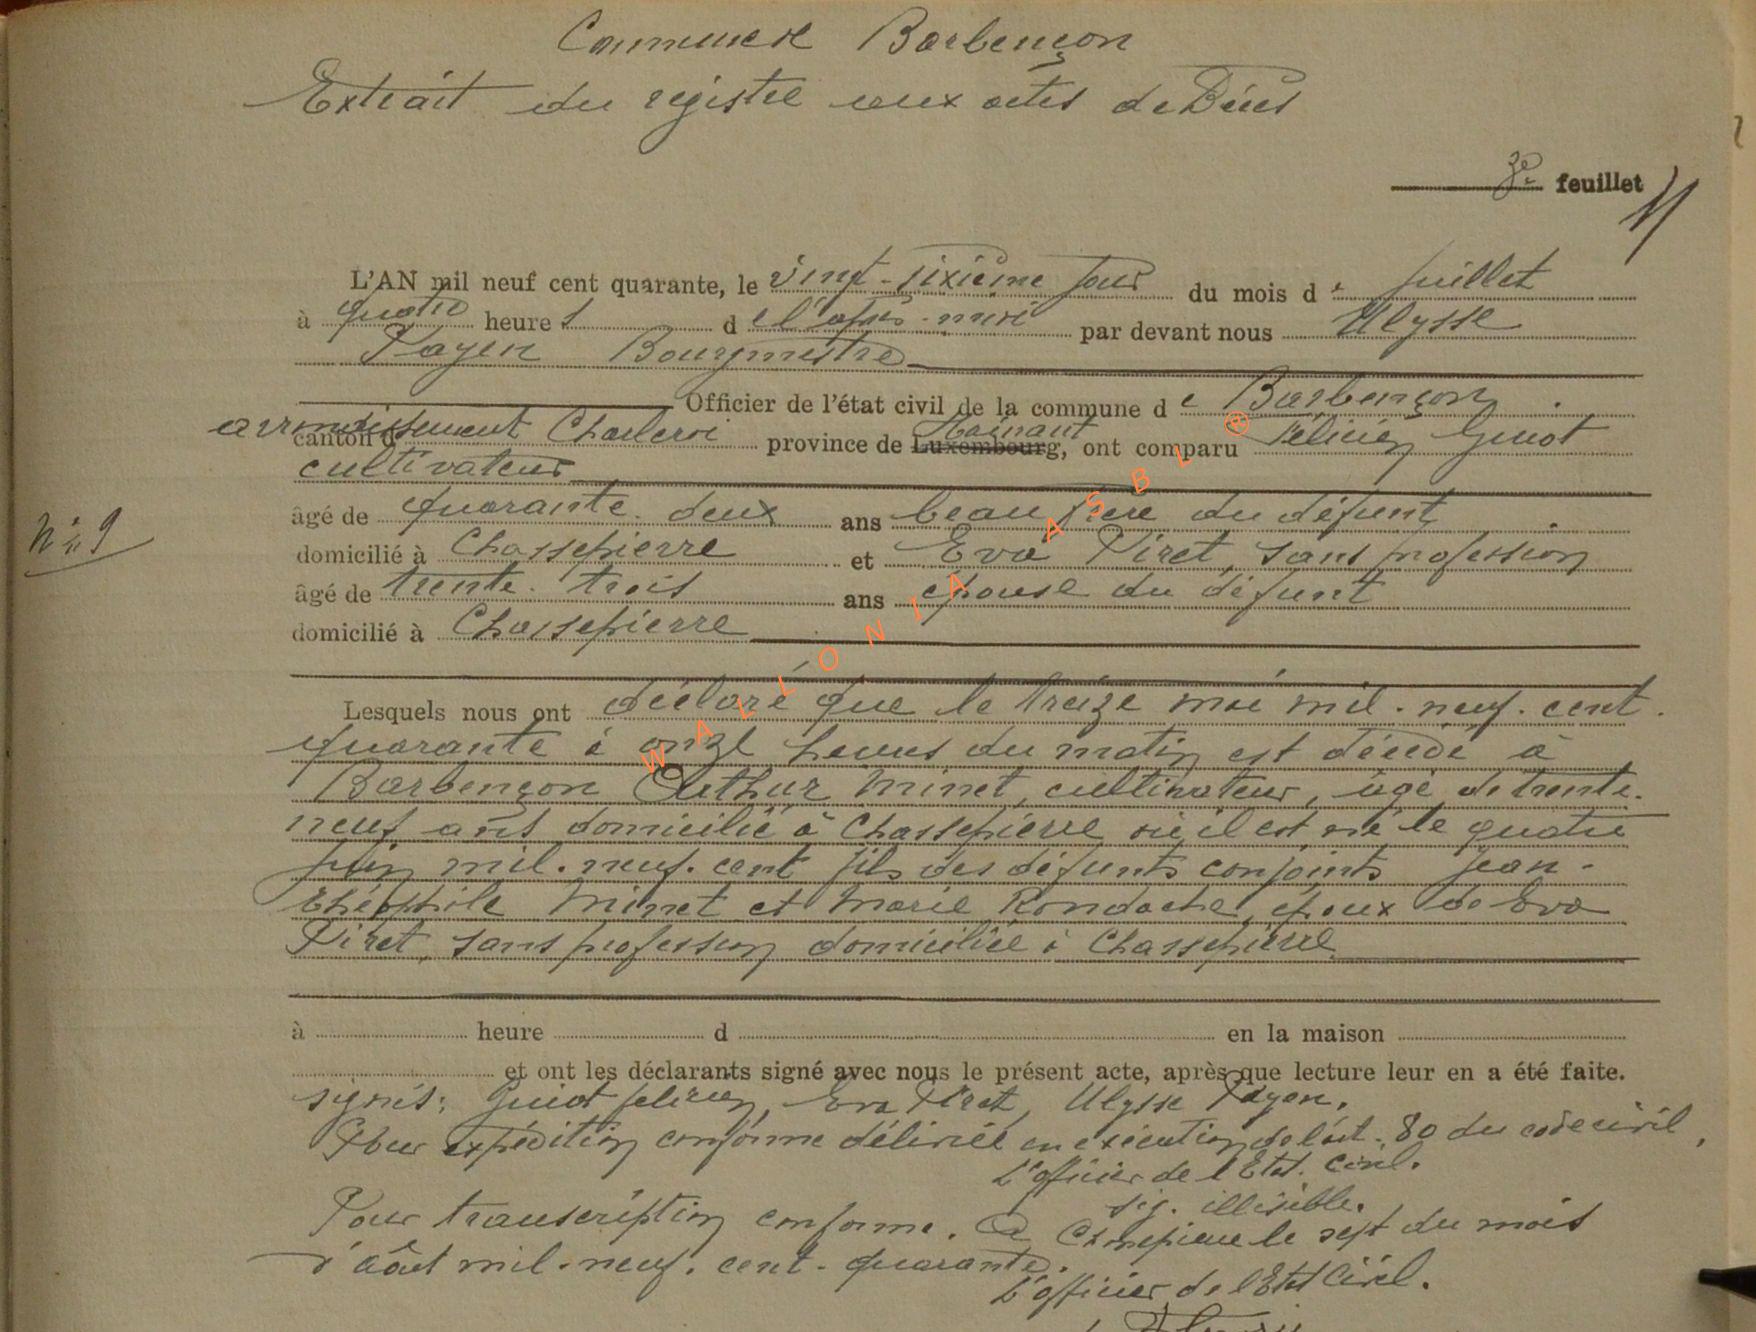 Commune de Barbençon
Extrait du registre aux actes de Décès
3e feuillet
L'AN mil neuf cent quarante, le vingt-sixième jour du mois de juillet
à quatre heures de l'après-midi par devant nous Ulysse
Payen Bourgmestre
Officier de l'état civil de la commune de Barbençon
arrondissement Charleroi province de Hainaut Luxembourg, ont comparu Félicien Guiot
canton d
cultivateur
Nº 9
âgé de quarante-deux ans beau frère du défunt
domicilié à Chassepierre et Eva Piret, sans profession
âgé de trente-trois ans épouse du défunt
domicilié à Chassepierre
Lesquels nous ont déclaré que le treize mai mil-neuf-cent
quarante à onze heures du matin est décédé à
Barbençon Arthur Minet, cultivateur, âgé de trente-
neuf ans domicilié à Chassepierre où il est né le quatre
juin mil-neuf-cent fils des défunts conjoints Jean-
Théophile Minet et Marie Rondache, époux de Eva
Piret, sans profession domiciliée à Chassepierre
à heure d en la maison
et ont les déclarants signé avec nous le présent acte, après que lecture leur en a été faite.
signés: Guiot félicien, Eva Piret, Ulysse Payen.
Pour expédition conforme délivrée en exécution de l'art. 80 du code civil,
L'officier de l'Etat. Civil.
sig. illisible.
Pour transcription conforme. A Chassepierre le sept du mois
d'août mil-neuf-cent-quarante.
L'officier de l'Etat Civil.
WALLONIA ASBL ®